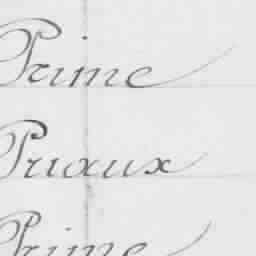 Prime
Priaux
Prime